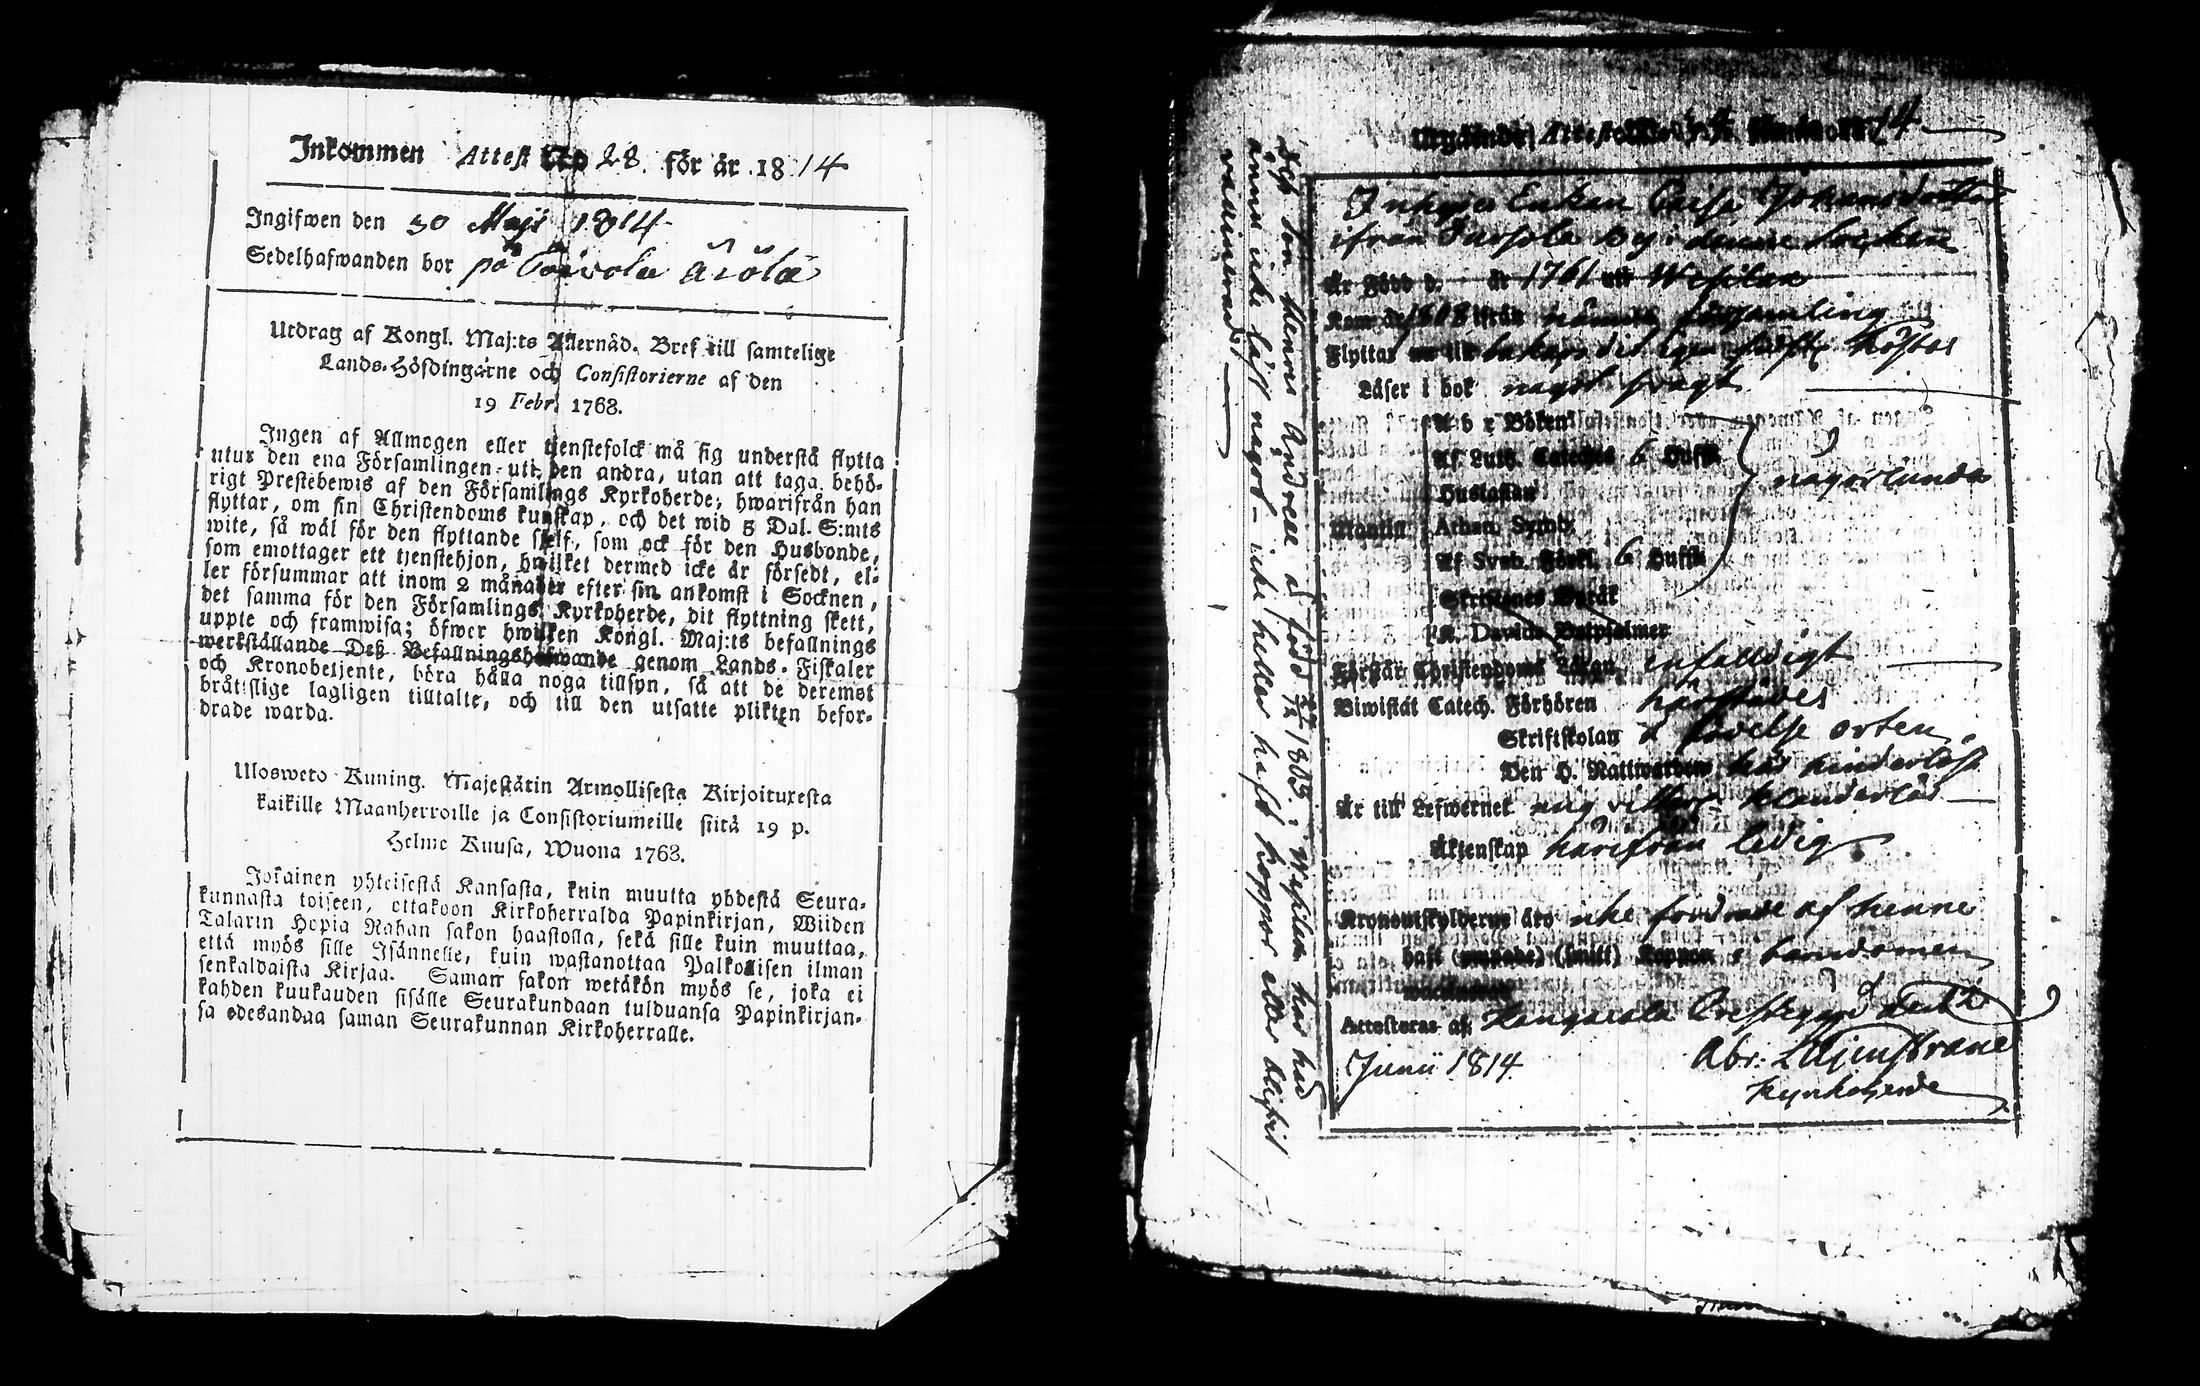 Inkommen Attest No 28. för år 1814
Ingifwen den 30 Maji 1814
Sedelhafwanden bor på Toivola
Utdrag af Kongl. Maj:ts Allernåd. Bref till samtelige
Lands-Höfdingarne och Consistorierne af den
19 Febr. 1768.
Ingen af Allmogen eller tjenstefolck må sig understå flytta
utur den ena Församlingen uti den andra, utan att taga behö-
rigt Prestebewis af den Församlings Kyrkoherde, hwarifrån han
flyttar, om sin Christendoms kunskap, och det wid 5 Dal. S:mts
wite, så wäl för den flyttande sjelf, som ock för den Husbonde,
som emottager ett tjenstehjon, hwilket dermed icke är försedt, el-
ler försummar att inom 2 månader efter sin ankomst i Socknen,
det samma för den Församlings Kyrkoherde, dit flyttning skett,
uppte och framwisa; öfwer hwilken Kongl. Maj:ts befallnings
werkställande Deß Befallningshafwande genom Lands-Fiskaler
och Kronobetjente, böra hålla noga tillsyn, så att de deremot
bråtslige lagligen tilltalte, och till den utsatte plikten befor-
drade warda.
Ulosweto Kuning. Majestätin Armollisesta Kirjoituxesta
kaikille Maanherroille ja Consistoriumeille siitä 19 p.
Helme Kuusa, Wuona 1768.
Jokainen yhteisestä Kansasta, kuin muutta yhdestä Seura-
kunnasta toiseen, ottakoon Kirkoherralda Papinkirjan, Wiiden
Talarin Hopia Rahan sakon haastolla, sekä sille kuin muuttaa,
että myös sille Isännelle, kuin wastanottaa Palkollisen ilman
senkaldaista Kirjaa. Saman sakon wetäkön myös se, joka ei
kahden kuukauden sisälle Seurakundaan tulduansa Papinkirjan-
sa edesandaa saman Seurakunnan Kirkoherralle.
14
Enkan Caisa Johansdotter
ifrån By i denne Socken
Är Född d. år 1761 uti Wesilax
Kom år 1808 ifrån nämnde församling
Flyttar nu till
Läser i bok något svagt
A b c Boken
Af Luth. Cateches 6 Huft.
Hustaflan
någorlunda
Mantill Athan. Symb.
Af Symb. Förkl. 6 Huft.
Skriftenes Språk
K. Davids Botpsalmer
Förstår Christendoms Läran enfalldigt
Biwistat Catech. Förhören härstädes
Skriftskolan i födelse orten
Den H. Nattwarden här hinderlöst
Är till Lefwernet
Äktenskap härifrån ledig
Kronoutskylderne äro icke fordrade af henne
haft (ympade) (smitt) Koppor i barndomen
Attesteras af Kangasala Prestegård den
Junii 1814.
Abr.
Kyrkoherde
Deß Son Henric Andreae är född 27/12 1805 i Wesilax har här
ännu icke läst något – icke heller haft koppor eller blifvit
vaccinerad